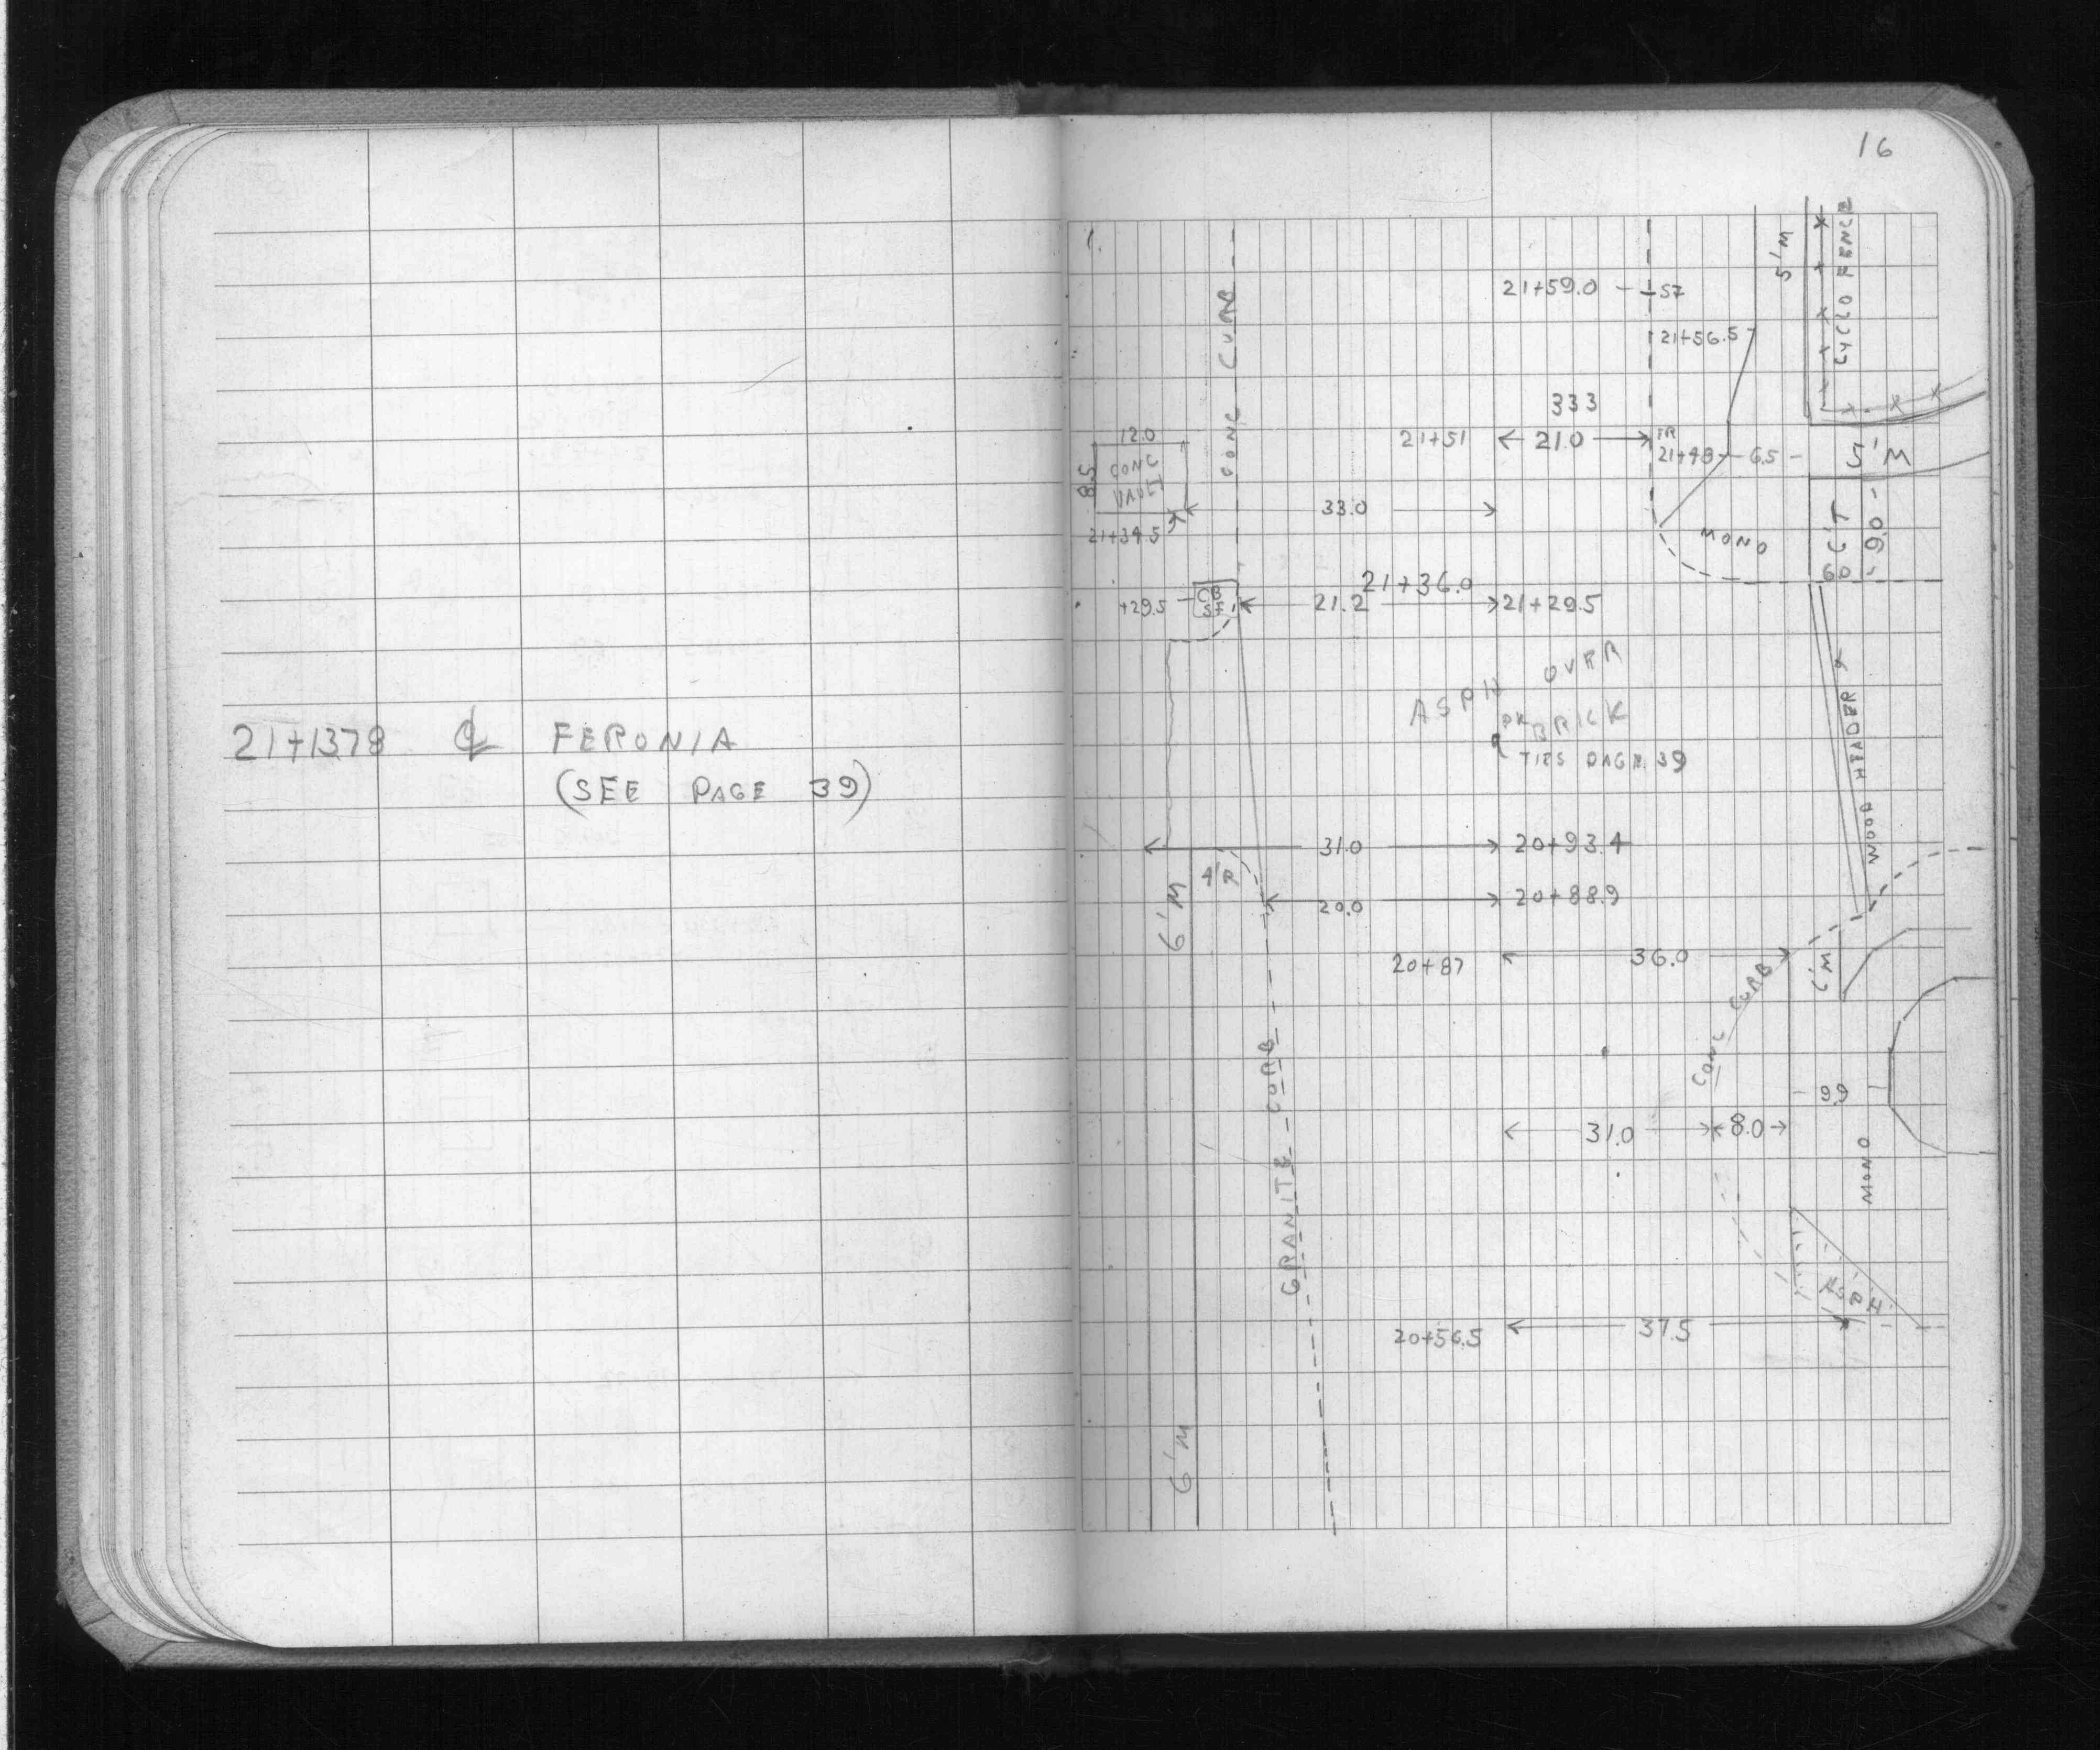 21+1378 ℄ FERONIA
(SEE PAGE 39)
16
1.
CONC CURB
5'M
CYCLO FENCE
21+59.0
57
21+56.5
333
12.0
8.5
CONC
VAULT
21+51
21.0
PR
21+48 6.5
5'M
33.0
21+34.5
MONO
6'T
9.0
6.0
21+36.0
+29.5
CB
21.2
21+29.5
ASPH OVER
BRICK
PK
TIES PAGE 39
WOOD HEADER
31.0
20+93.4
4'R
6'M
20.0
20+88.9
20+87
36.0
6'M
CONC CURB
GRANITE CURB
9.9
31.0
8.0
MONO
ASPH
20+56.5
37.5
6'M